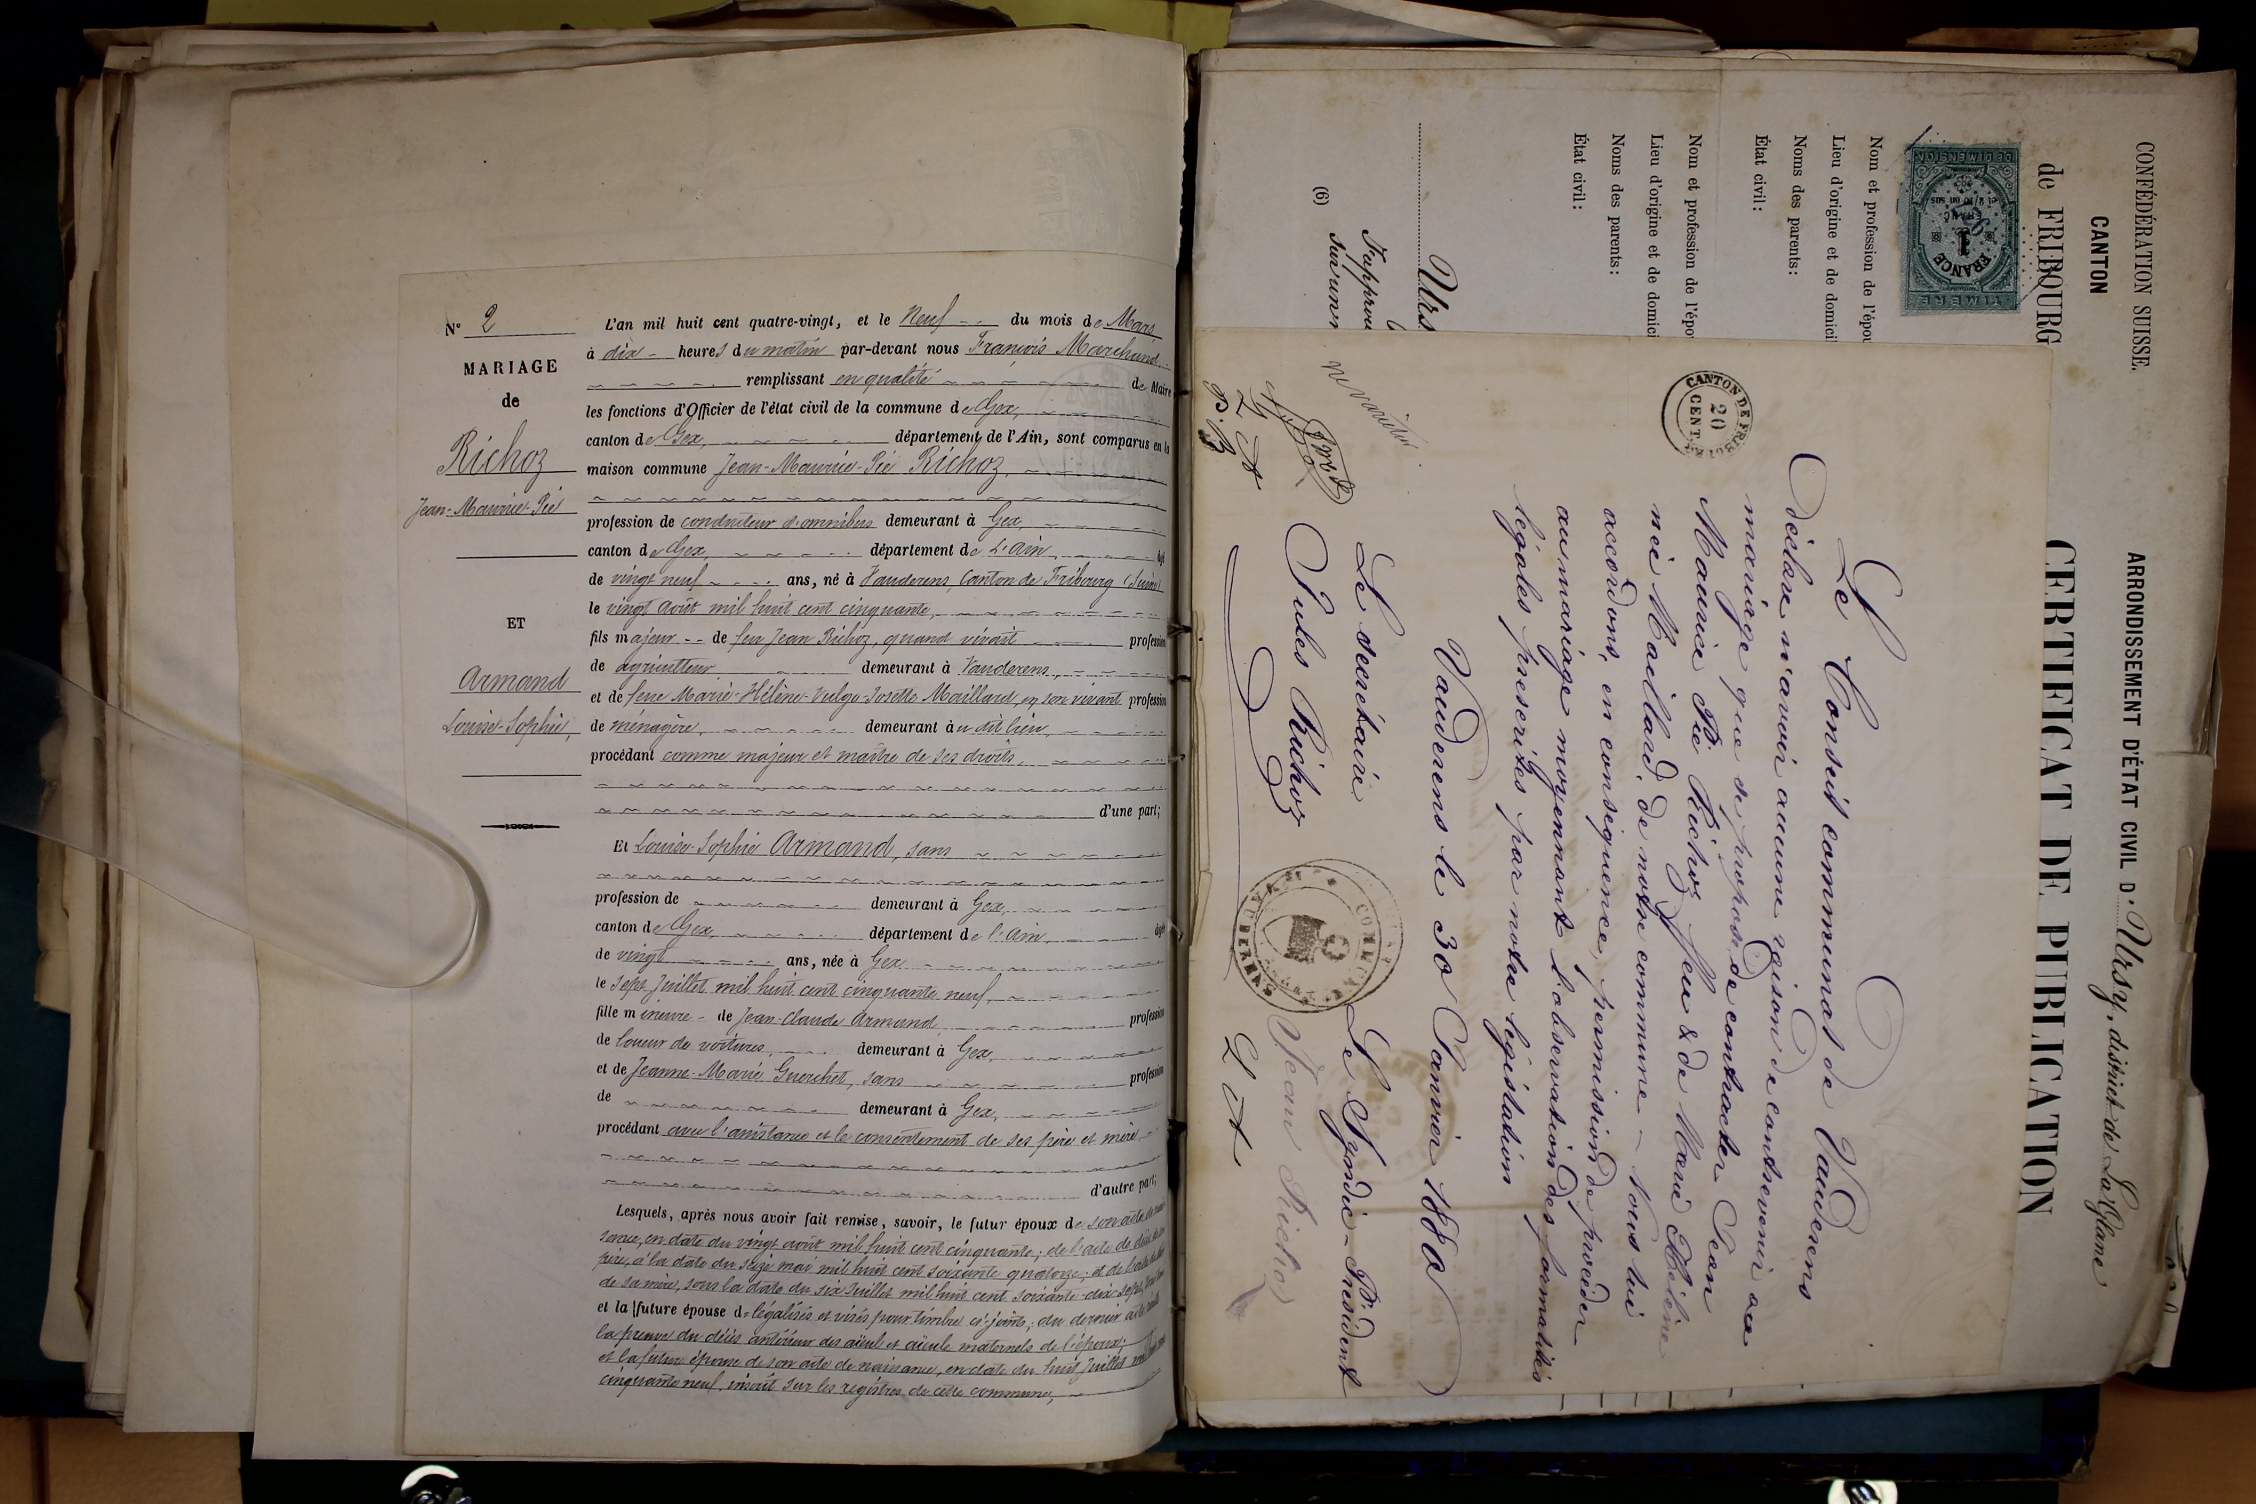 N° 2
MARIAGE
de
Richoz
Jean-Maurice-Pie
ET
Armand
Louise-Sophie,
L'an mil huit cent quatre-vingt, et le Neuf du mois de Mars
à dix heures du matin par-devant nous François Marchand
remplissant en qualité de Maire
les fonctions d'Officier de l'état civil de la commune de Gex,
canton de Gex, département de l'Ain, sont comparus en la
maison commune Jean-Maurice-Pie Richoz,
profession de conducteur d'omnibus demeurant à Gex,
canton de Gex, département de L'Ain, âgé
de vingt neuf ans, né à Vauderens, Canton de Fribourg (Suisse)
le vingt août mil huit cent cinquante,
fils majeur de feu Jean Richoz, quand vivait profession
de agriculteur demeurant à Vauderens,
et de feue Marie-Hélène-Vulgo-Josette Maillard, en son vivant profession
de ménagère, demeurant au dit lieu,
procédant comme majeur et maître de ses droits,
d'une part;
Et Louise-Sophie Armand, sans
profession de demeurant à Gex,
canton de Gex, département de l'Ain, âgée
de vingt ans, née à Gex
le sept Juillet mil huit cent cinquante neuf,
fille mineure de Jean-Claude Armand profession
de loueur de voitures, demeurant à Gex,
et de Jeanne-Marie Guerchet, sans profession
de demeurant à Gex,
procédant avec l'assistance et le consentement de ses père et mère
d'autre part;
Lesquels, après nous avoir fait remise, savoir, le futur époux de son acte de nais-
sance, en date du vingt août mil huit cent cinquante; de l'acte de décès de son
père, à la date du seize mai mil huit cent soixante quatorze; et de l'acte de décès
de sa mère, sous la date du six Juillet mil huit cent soixante-dix-sept,
et la future épouse d= légalisés et visés pour timbre ci-joints; du dernier acte
la preuve du décès antérieur des aïeul et aïeule maternels de l'époux;
et la future épouse de son acte de naissance, en date du huit Juillet mil huit cent
cinquante neuf, inscrit sur les registres de cette commune,
CONFÉDÉRATION SUISSE.
CANTON
de FRIBOURG
ARRONDISSEMENT D'ÉTAT CIVIL D'Ursy, district de La Glane
CERTIFICAT DE PUBLICATION
TIMBRE
FRANCE
1
FRANC
et 2/10 en sus
DE DIMENSION
Nom et profession de l'épou
Lieu d'origine et de domicil
Noms des parents:
État civil:
Nom et profession de l'épo
Lieu d'origine et de domici
Noms des parents:
État civil:
Urs
(6)
CANTON DE FRIBOURG
20
CENT.
Le Conseil communal de Vauderens
déclare n'avoir aucune raison de contrevenir au
mariage que se propose de contracter Jean
Maurice Pie Richoz, ffeu & de Marie Hélène
née Maillard, de notre commune - Nous lui
accordons, en conséquence, permission de procéder
au mariage moyennant l'observation des formalités
légales prescrites par notre législation
Vauderens le 30 Janvier 1880
Le secrétaire
Le Syndic-Président
Jules Richoz
Jean Richoz
COMMUNE
VAUDERENS
ne varietur